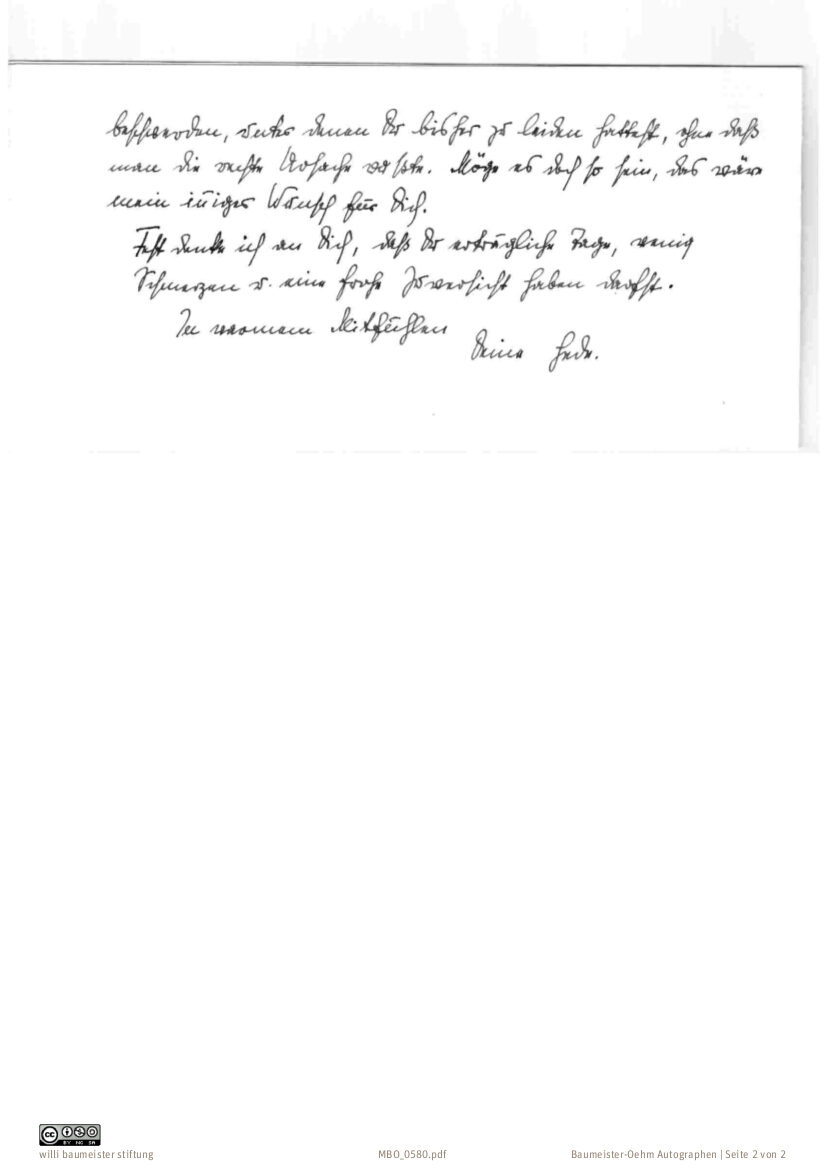 beschwerden, unter denen Du bisher zu leiden hattest, ohne daß
man die rechte Ursache wußte. Möge es doch so sein, das wäre
mein inniger Wunsch für Dich.
Fest denke ich an Dich, daß Du erträgliche Tage, wenig
Schmerzen u. eine frohe Zuversicht haben darfst.
In warmem Mitfühlen
Deine Hede.
BY NC SA
willi baumeister stiftung
MBO_0580.pdf
Baumeister-Oehm Autographen | Seite 2 von 2